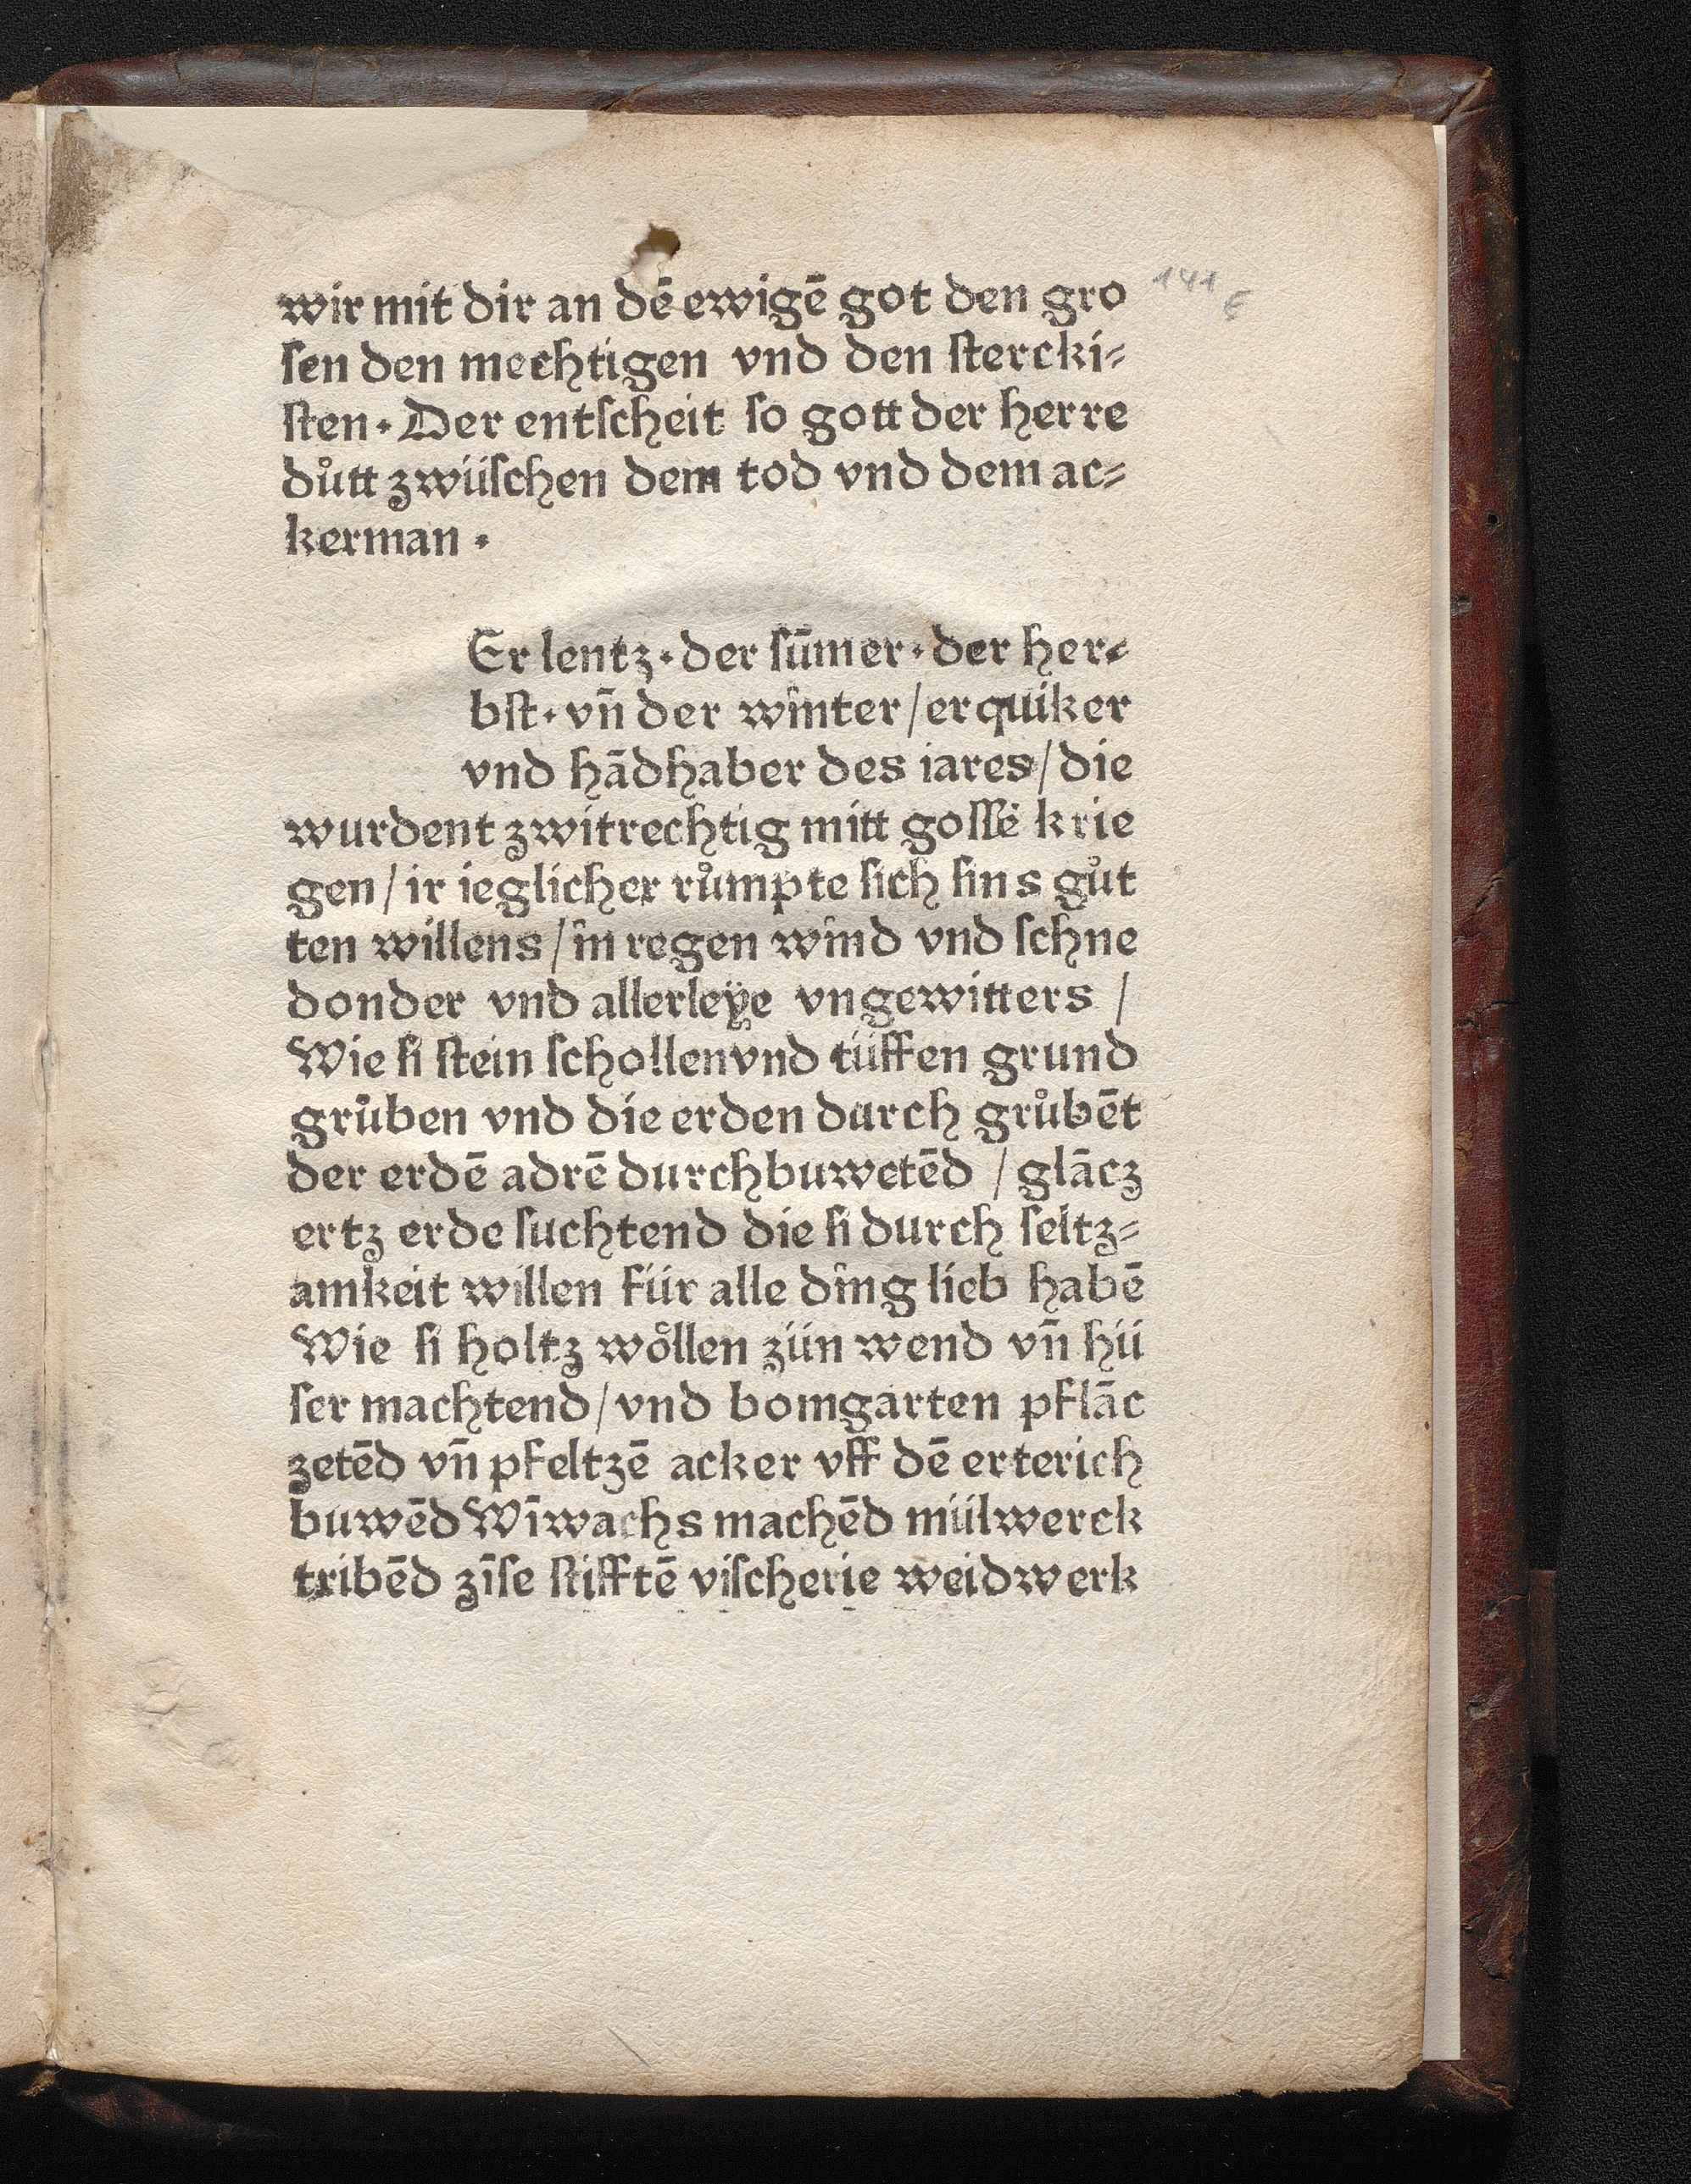 wir mit dir an dē ewigē got den gro
ſen den mechtigen vnd den ſtercki⸗
ſten· Der entſcheit ſo gott der herre
důtt zwüſchen dem tod vnd dem ac⸗
kerman ·
141
Er lentz· der ſūmer· der her⸗
bſt· vn̄ der winter/er quiker
vnd hādhaber des iares/die
wurdent zwitrechtig mitt goſſē krie
gen/ir ieglicher růmpte ſich ſins gůt
ten willens/in regen wind vnd ſchne
donder vnd allerleÿe vngewitters /
Wie ſi ſtein ſchollen vnd tüffen grund
grůben vnd die erden durch grůbēt
der erdē adrē durchbuwetēd / glācz
ertz erde ſuchtend die ſi durch ſeltz⸗
amkeit willen für alle ding lieb habē
Wie ſi holtz wo̊llen zün wend vn̄ hü
ſer machtend/vnd bomgarten pflāc
zetēd vn̄ pfeltzē acker vff dē erterich
buwēd Wīwachs machēd mülwerck
tribēd zīſe ſtifftē viſcherie weidwerk